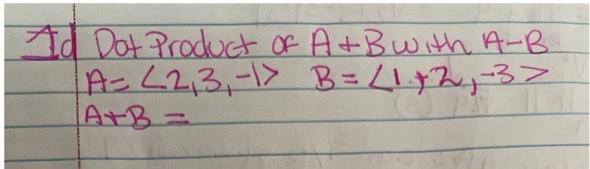 1d Dot Product of A+B with A-B
A= <2,3,-1> B= <1,+2,-3>
A+B =